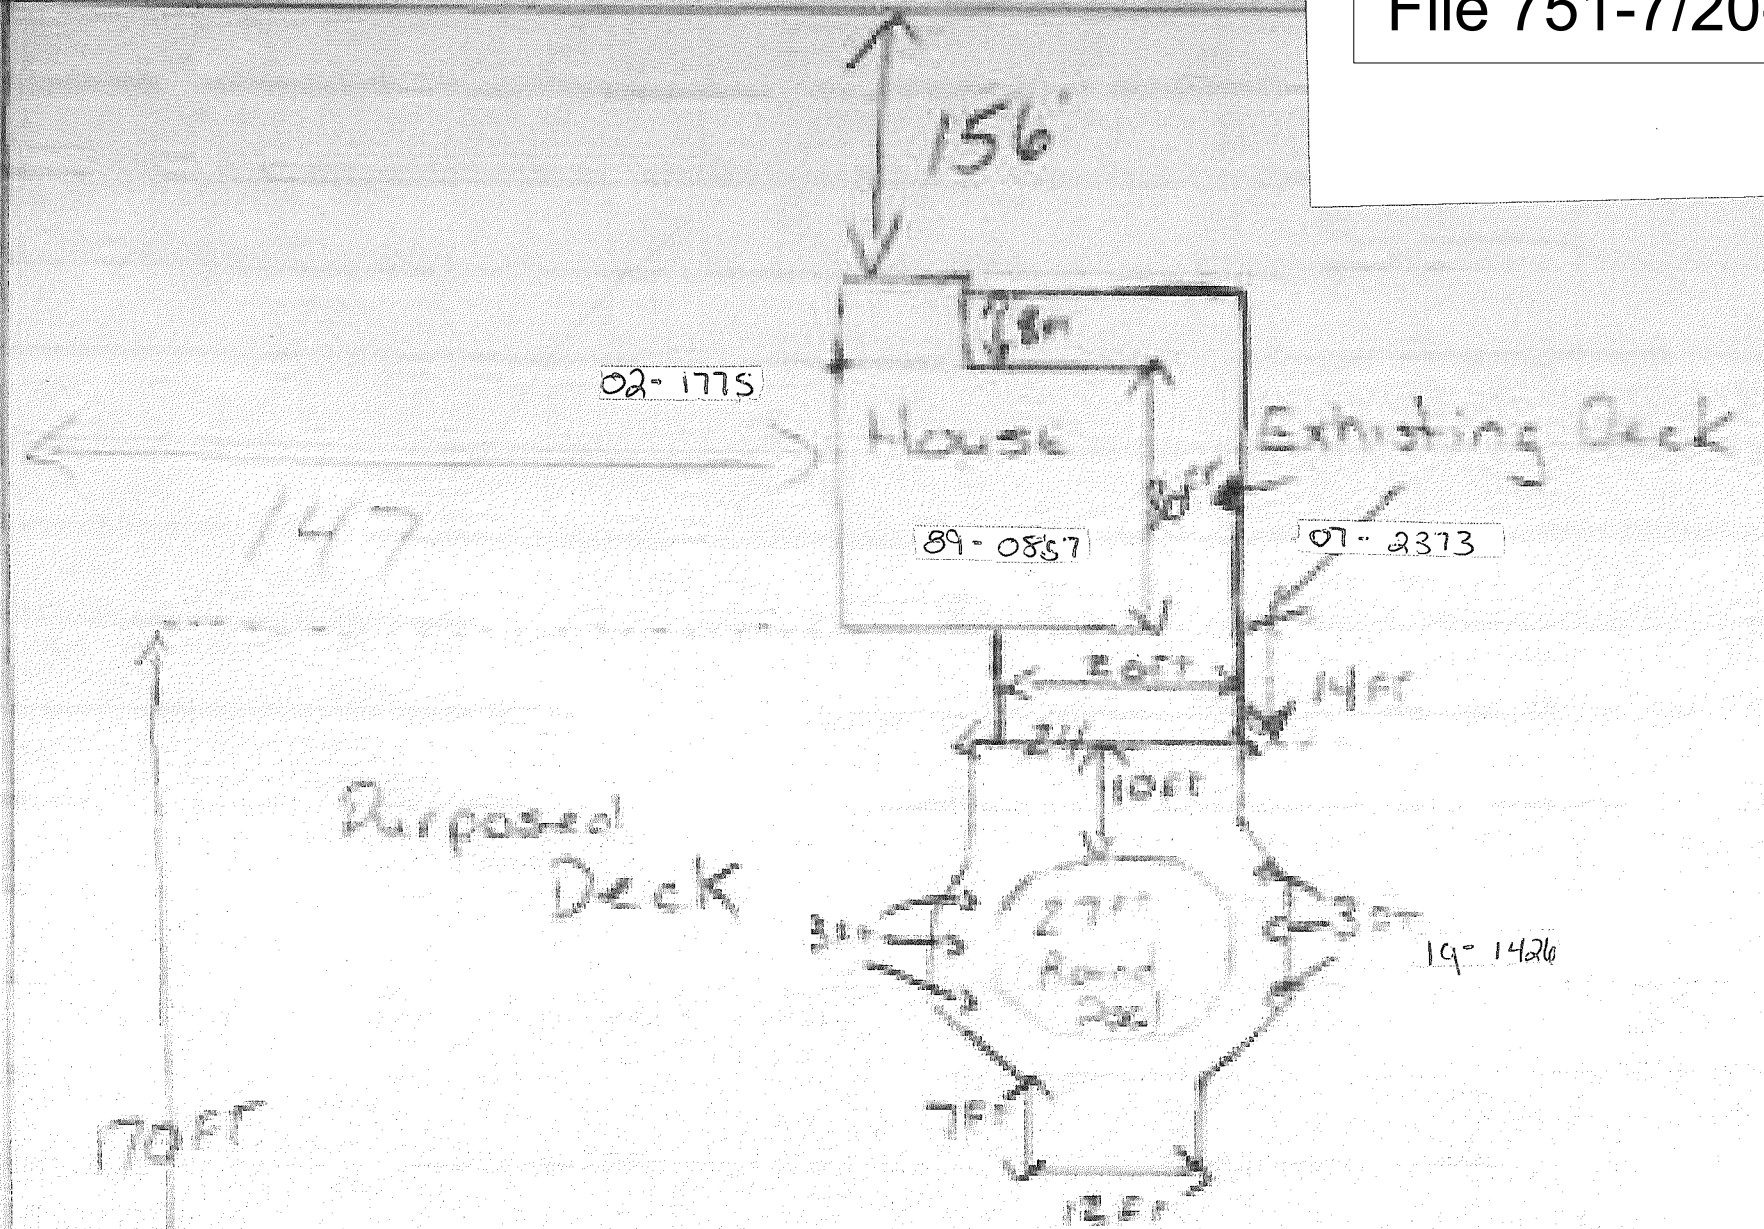 File 751-7/20
156'
8FT
02-1775
House
Exhisting Deck
147
89-0857
07-2373
20FT
14FT
24
10FT
Purposed
Deck
27FT
Round
Pool
3FT
19-1426
7FT
170FT
12FT